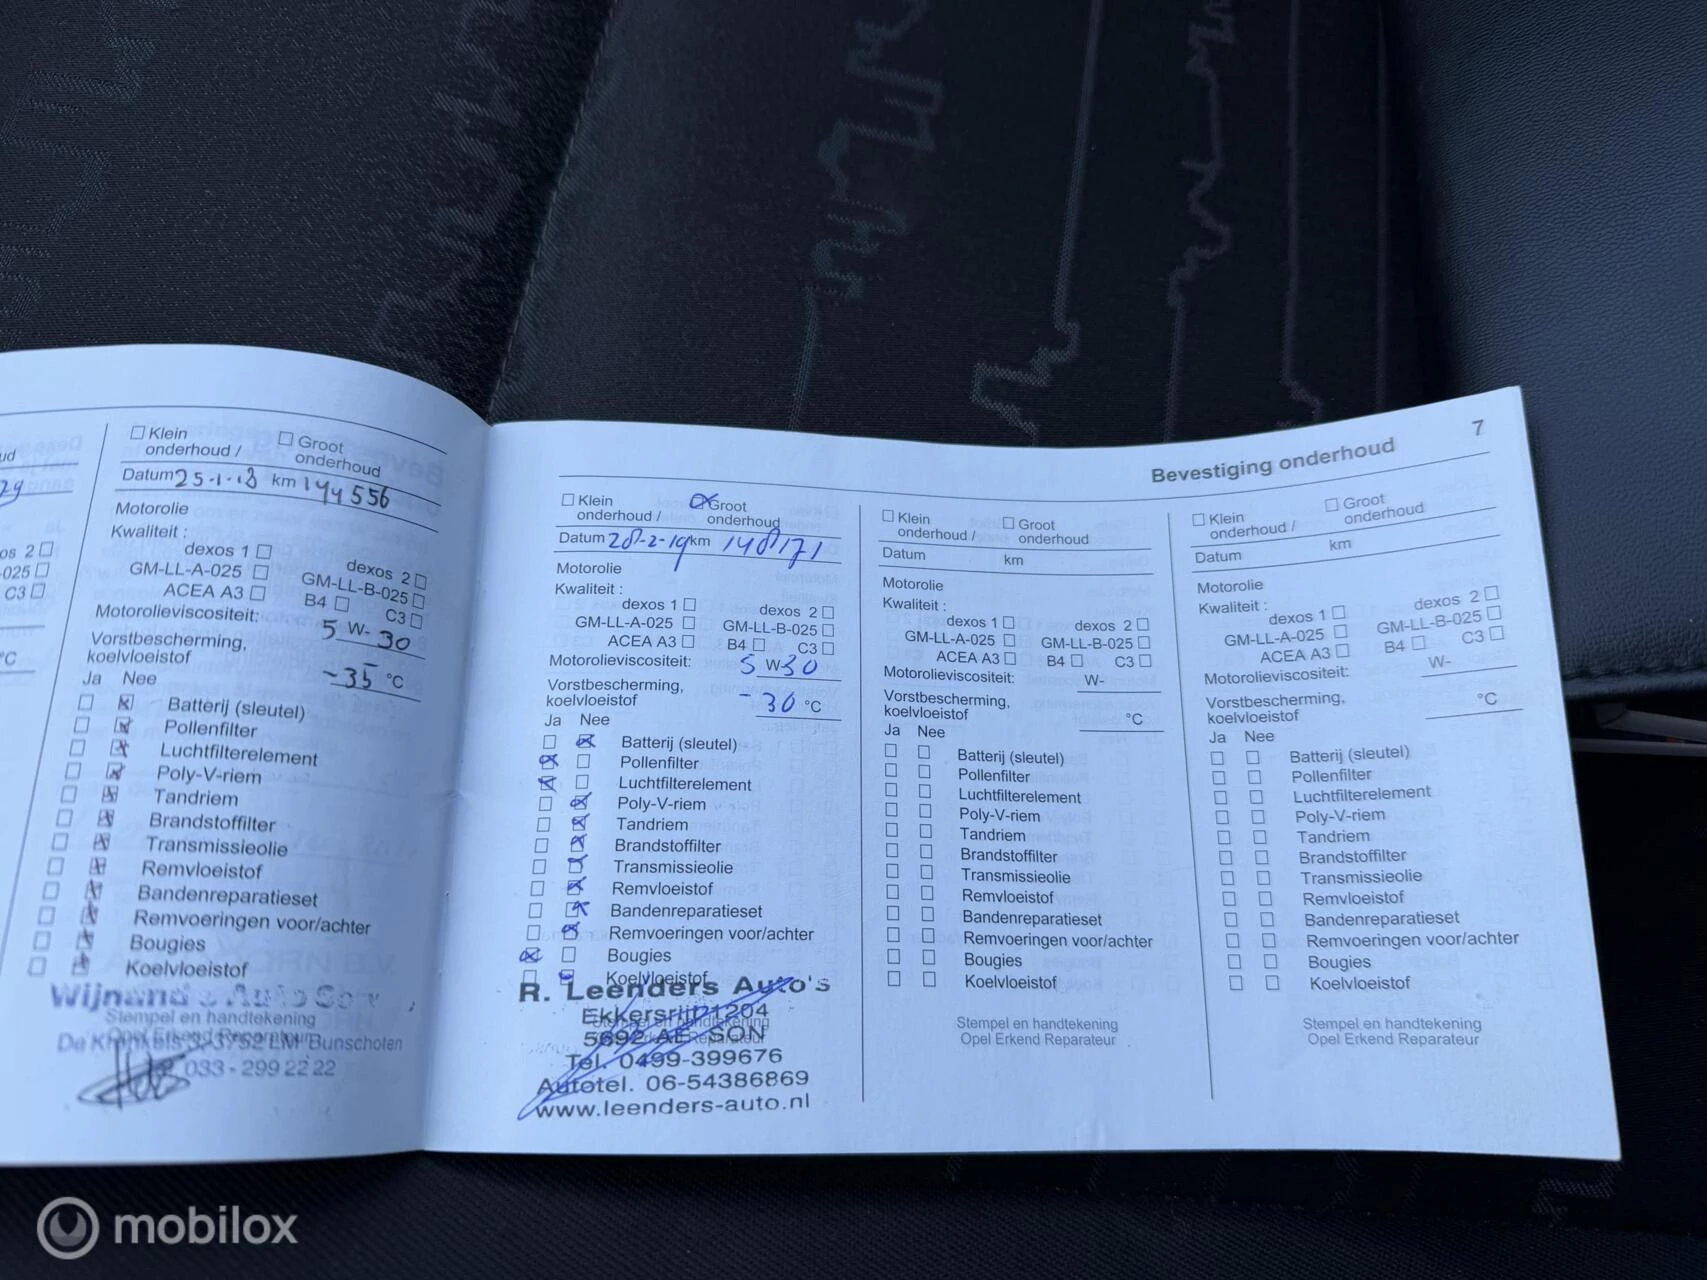 ud
os 2
-025
C3
°C
Klein onderhoud / Groot onderhoud
Datum 25-1-18 km 144556
Motorolie
Kwaliteit :
dexos 1 dexos 2
GM-LL-A-025 GM-LL-B-025
ACEA A3 B4 C3
Motorolieviscositeit: 5 W- 30
Vorstbescherming,
koelvloeistof -35 °C
Ja Nee
Batterij (sleutel)
Pollenfilter
Luchtfilterelement
Poly-V-riem
Tandriem
Brandstoffilter
Transmissieolie
Remvloeistof
Bandenreparatieset
Remvoeringen voor/achter
Bougies
Koelvloeistof
Stempel en handtekening
Opel Erkend Reparateur
Bunschoten
033 - 299 22 22
7
Bevestiging onderhoud
Klein onderhoud / Groot onderhoud
Datum 28-2-19 km 148171
Motorolie
Kwaliteit :
dexos 1 dexos 2
GM-LL-A-025 GM-LL-B-025
ACEA A3 B4 C3
Motorolieviscositeit: 5 W 30
Vorstbescherming,
koelvloeistof -30 °C
Ja Nee
Batterij (sleutel)
Pollenfilter
Luchtfilterelement
Poly-V-riem
Tandriem
Brandstoffilter
Transmissieolie
Remvloeistof
Bandenreparatieset
Remvoeringen voor/achter
Bougies
Koelvloeistof
R. Leenders Auto's
Ekkersrijt 1204
Stempel en handtekening
5692 AF SON
Tel. 0499-399676
Autotel. 06-54386869
www.leenders-auto.nl
Klein onderhoud / Groot onderhoud
Datum km
Motorolie
Kwaliteit :
dexos 1 dexos 2
GM-LL-A-025 GM-LL-B-025
ACEA A3 B4 C3
Motorolieviscositeit: W-
Vorstbescherming,
koelvloeistof °C
Ja Nee
Batterij (sleutel)
Pollenfilter
Luchtfilterelement
Poly-V-riem
Tandriem
Brandstoffilter
Transmissieolie
Remvloeistof
Bandenreparatieset
Remvoeringen voor/achter
Bougies
Koelvloeistof
Stempel en handtekening
Opel Erkend Reparateur
Klein onderhoud / Groot onderhoud
Datum km
Motorolie
Kwaliteit :
dexos 1 dexos 2
GM-LL-A-025 GM-LL-B-025
ACEA A3 B4 C3
Motorolieviscositeit: W-
Vorstbescherming,
koelvloeistof °C
Ja Nee
Batterij (sleutel)
Pollenfilter
Luchtfilterelement
Poly-V-riem
Tandriem
Brandstoffilter
Transmissieolie
Remvloeistof
Bandenreparatieset
Remvoeringen voor/achter
Bougies
Koelvloeistof
Stempel en handtekening
Opel Erkend Reparateur
mobilox